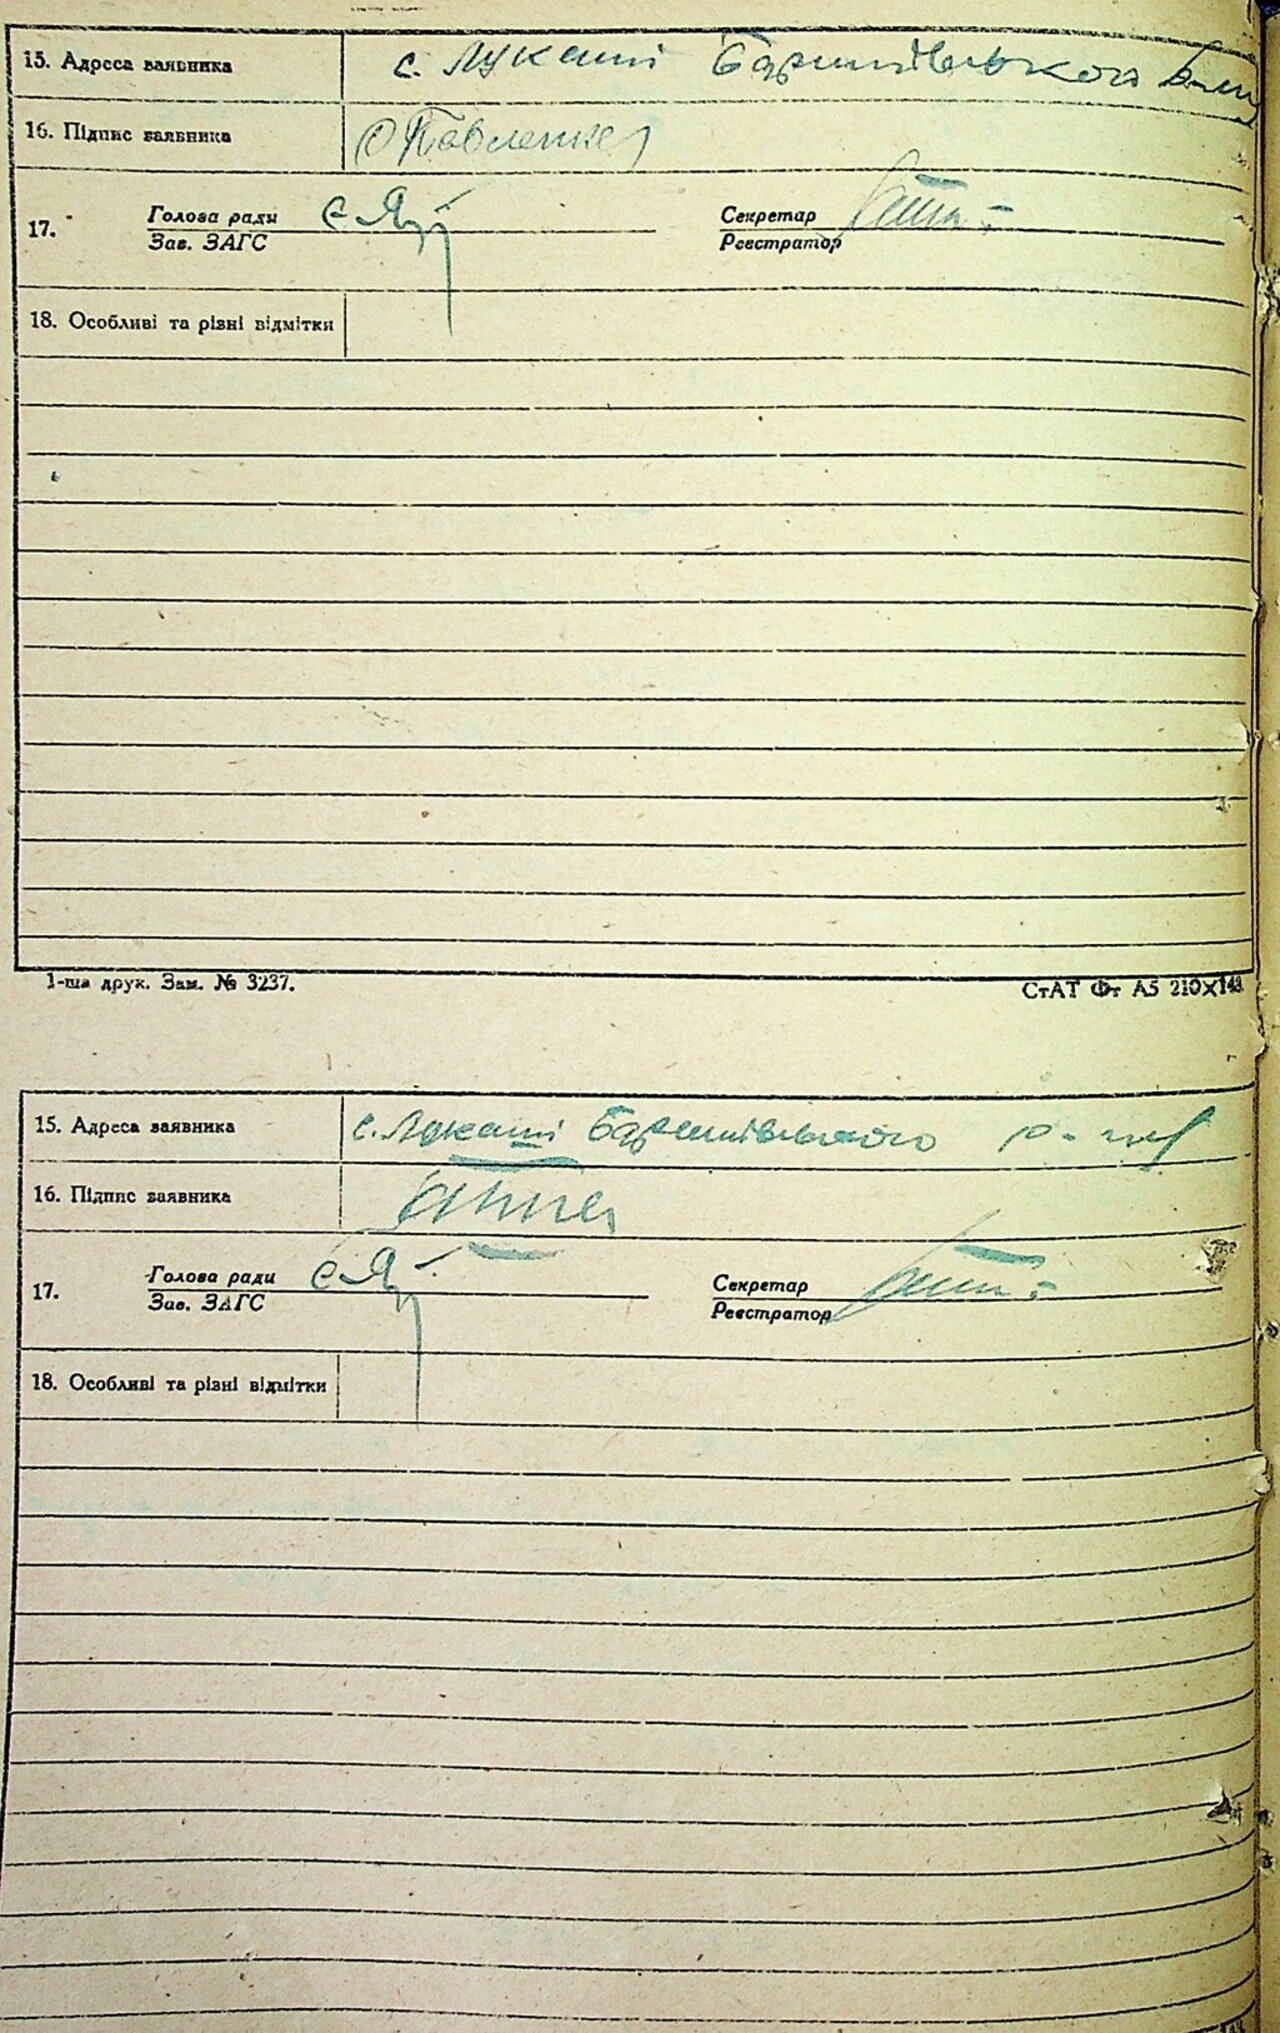 15. Адреса заявника с. Лукаші Баришівського
16. Підпис заявника Павленко
17. Голова ради Секретар
Зав. ЗАГС Реєстратор
18. Особливі та різні відмітки
1-ша друк. Зам. № 3237. СтАТ Фт А5 210×148
15. Адреса заявника с. Лукаші Баришівського р-ну
16. Підпис заявника
17. Голова ради Секретар
Зав. ЗАГС Реєстратор
18. Особливі та різні відмітки